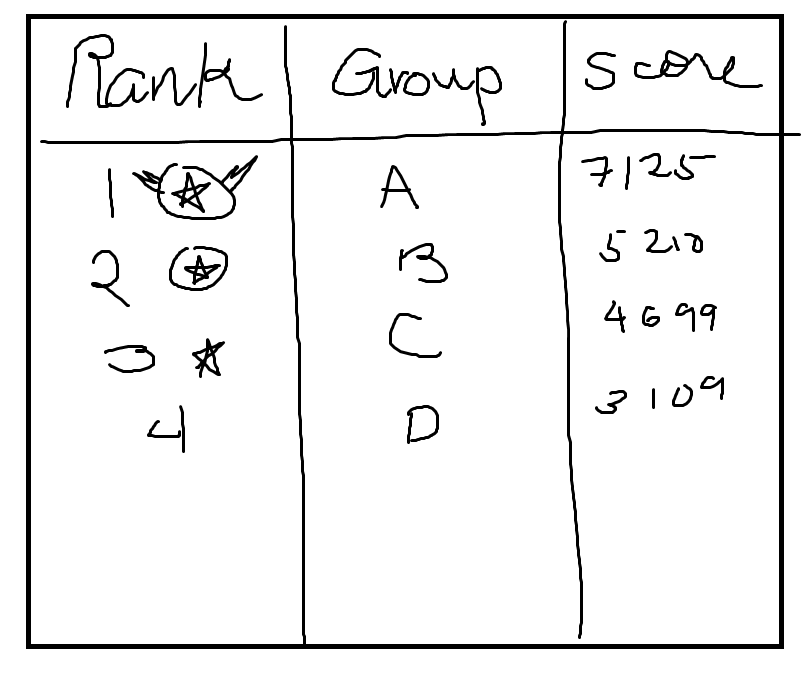 Rank Group Score
1 A 7125
2 B 5210
3 C 4699
4 D 3109